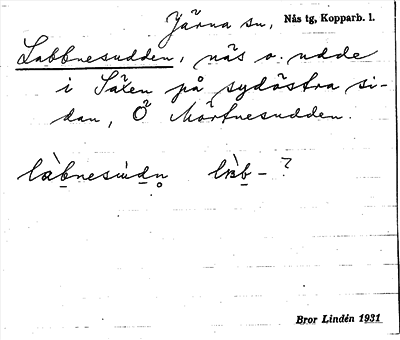 Järna sn, Nås tg, Kopparb. l.
Labbnesudden, näs o. udde
i Sälen på sydöstra si-
dan, Ö Mörtnesudden.
Bror Lindén 1931